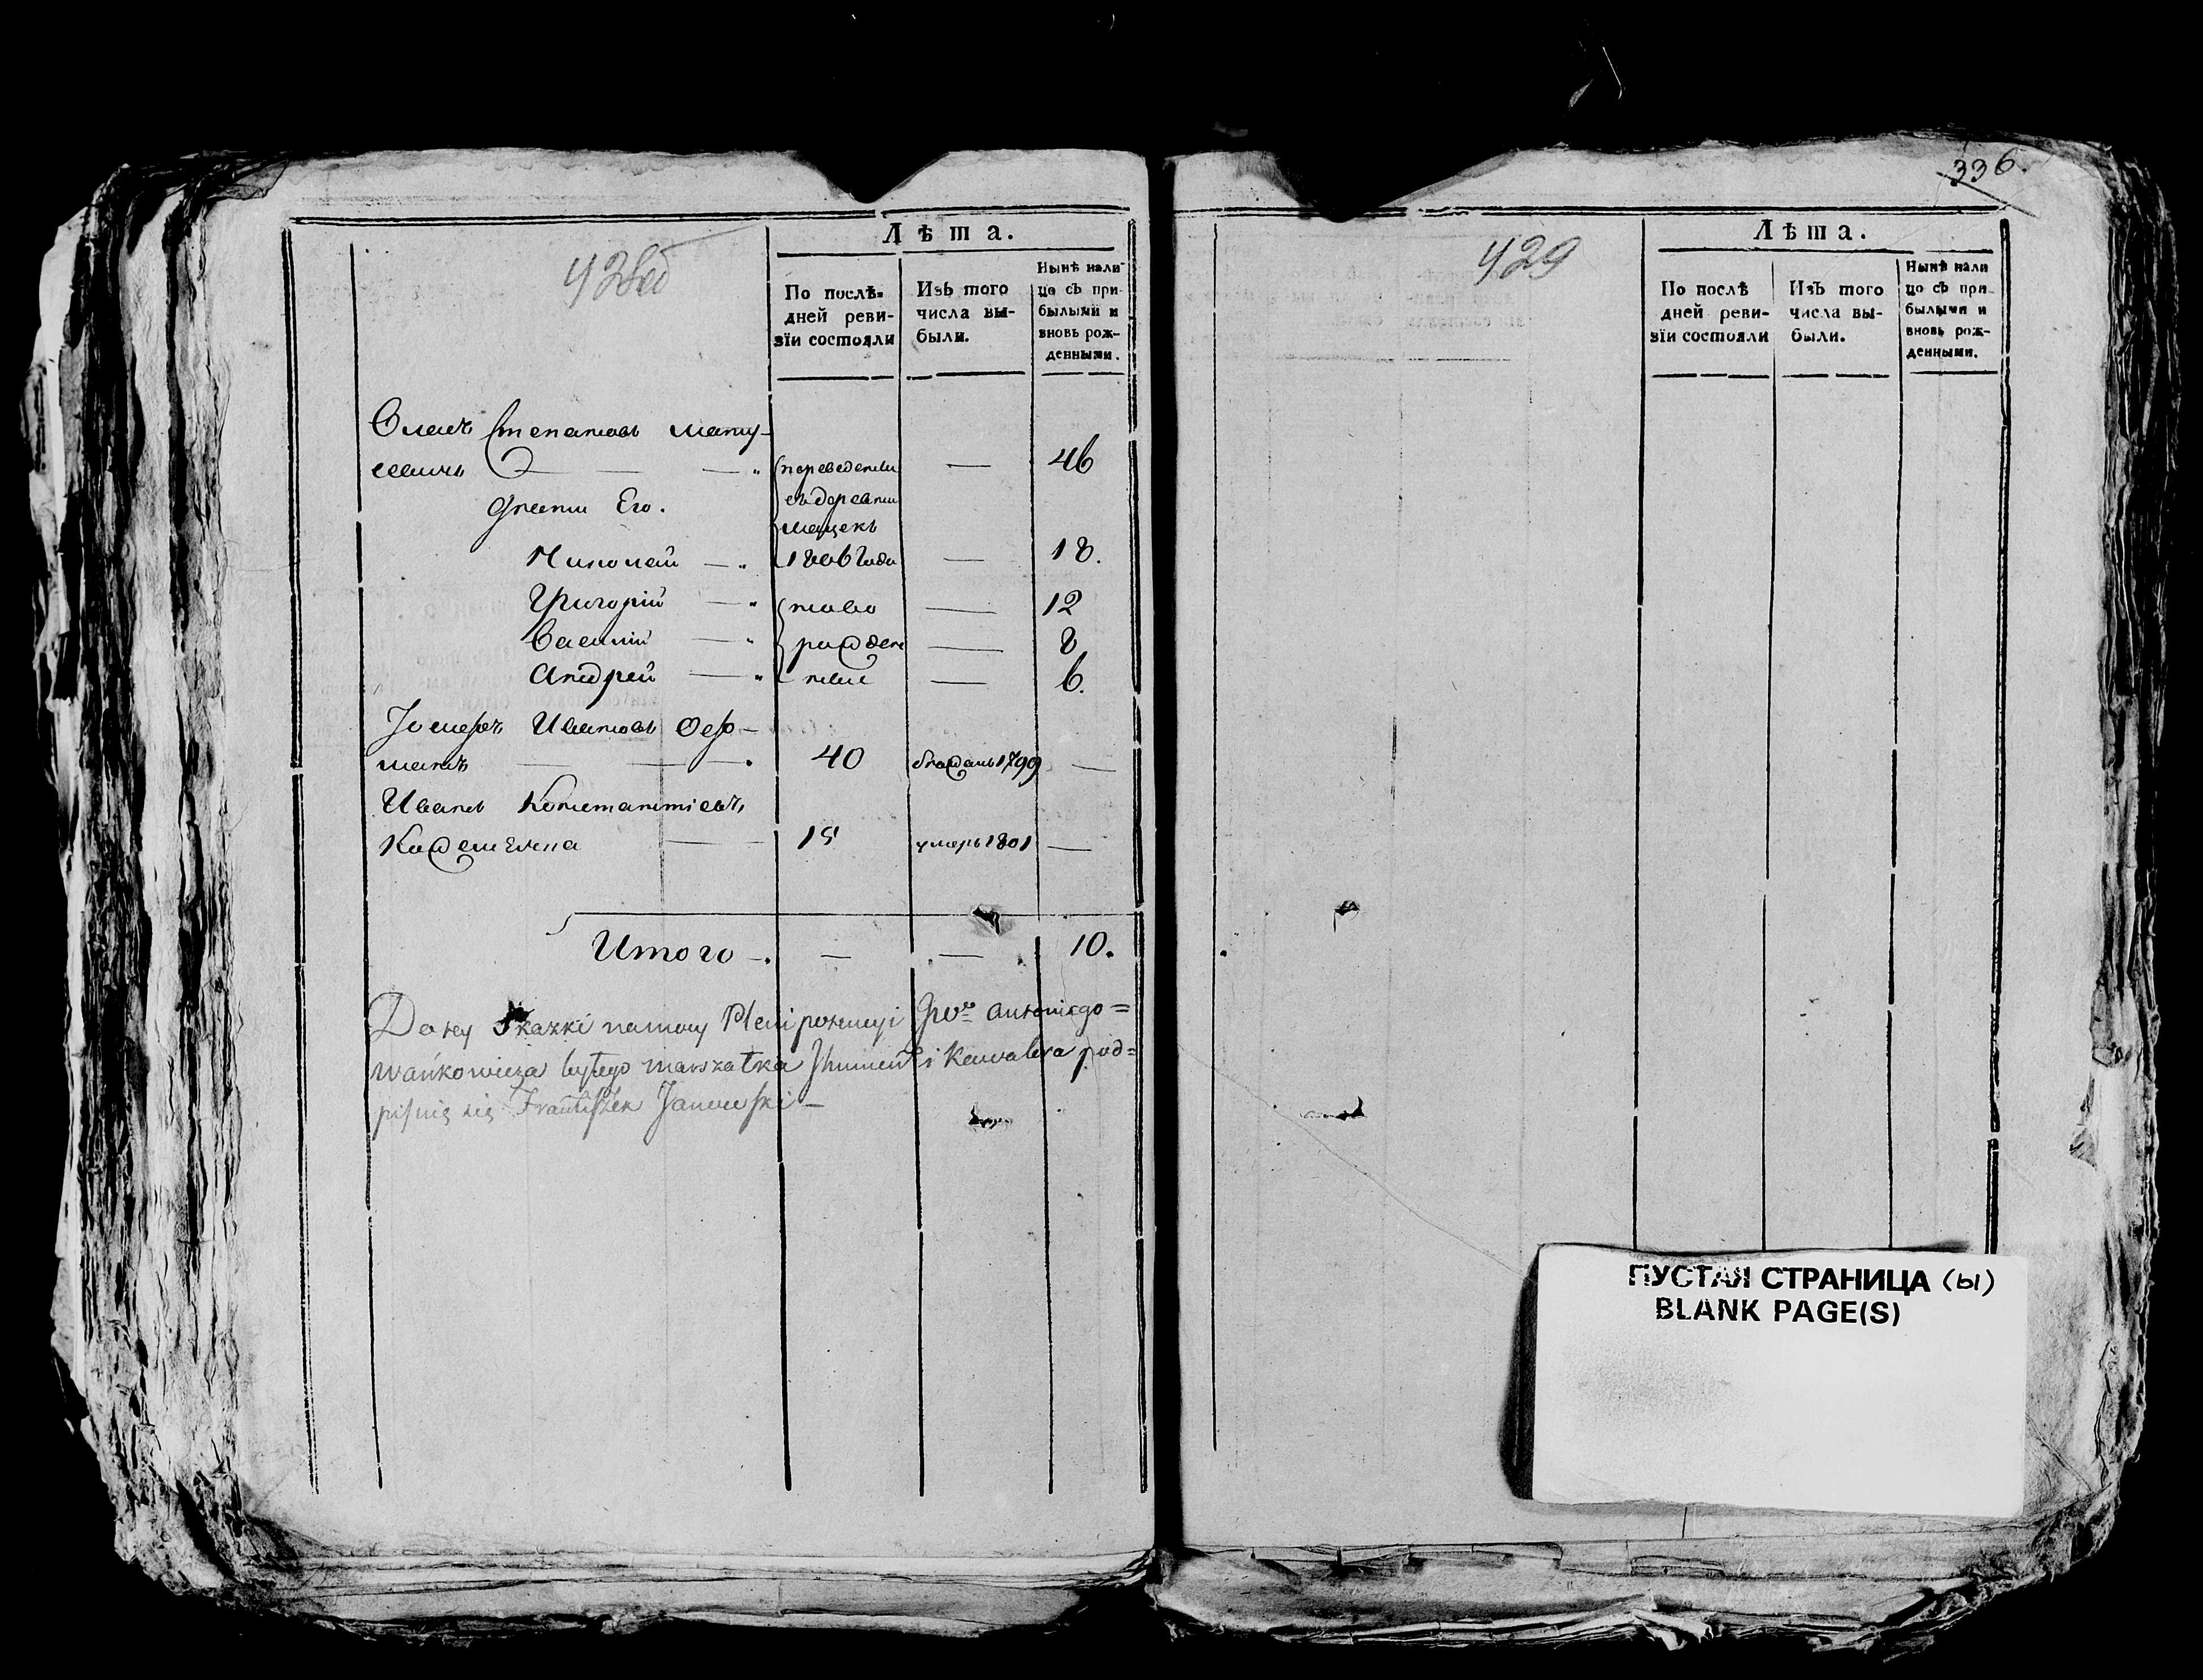 428об
Лѣта.
По послѣ-
дней реви-
зїи состояли
Изъ того
числа вы-
были.
Нынѣ нали
цо съ при-
былыми и
вновь рож-
денными.
Степановъ Мату-
севичь — — 46
переведены
въ деревни
1806 года
дѣти Его.
Николай — — 18.
Григорій — ново — 12
Василій — рожден — 8
Андрей — ные — 6.
Іосифъ Ивановъ Гер-
манъ — — 40 1799 —
Иванъ Константиевъ
15 умеръ 1801 —
Итого — — — 10.
Do tey Skazki namocy Plenipotencyi Antoniego=
wańkowicza byłego marszałka Jhumeń i Kawalera pod=
pisuię się Frantiszek Janowski —
336.
429
Лѣта.
По послѣ
дней реви-
зїи состояли
Изъ того
числа вы-
были.
Нынѣ нали
цо съ при-
былыми и
вновь рож-
денными.
ПУСТАЯ СТРАНИЦА (ы)
BLANK PAGE(S)